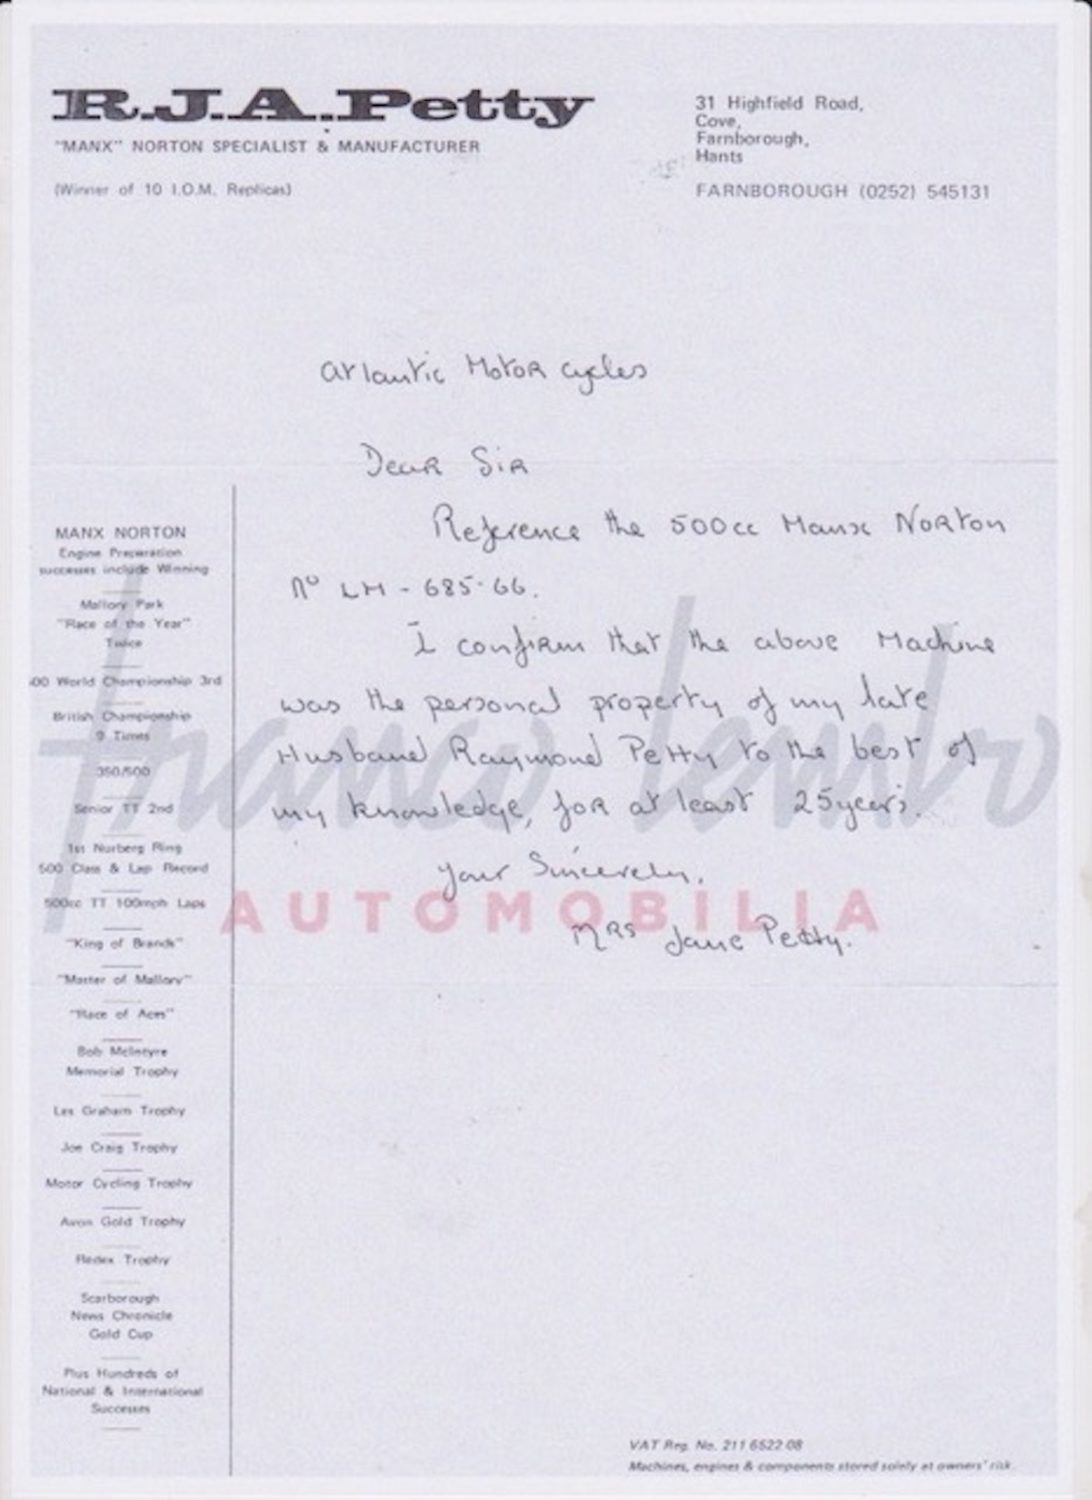 R.J.A. Petty
"MANX" NORTON SPECIALIST & MANUFACTURER
(Winner of 10 I.O.M. Replicas)
31 Highfield Road,
Cove,
Farnborough,
Hants
FARNBOROUGH (0252) 545131
Atlantic Motor cycles
Dear Sir
Reference the 500cc Manx Norton
No LM - 685-66.
I confirm that the above Machine
was the personal property of my late
Husband Raymond Petty to the best of
my knowledge, for at least 25 years.
your Sincerely,
Mrs Jane Petty.
MANX NORTON
Engine Preparation
successes include Winning
Mallory Park
"Race of the Year"
Twice
500 World Championship 3rd
British Championship
9 Times
350/500
Senior TT 2nd
1st Nurberg Ring
500 Class & Lap Record
500cc TT 100mph Laps
"King of Brands"
"Master of Mallory"
"Race of Aces"
Bob McIntyre
Memorial Trophy
Les Graham Trophy
Joe Craig Trophy
Motor Cycling Trophy
Avon Gold Trophy
Redex Trophy
Scarborough
News Chronicle
Gold Cup
Plus Hundreds of
National & International
Successes
franco lembo
AUTOMOBILIA
VAT Reg. No. 211 6522 08
Machines, engines & components stored solely at owners' risk.